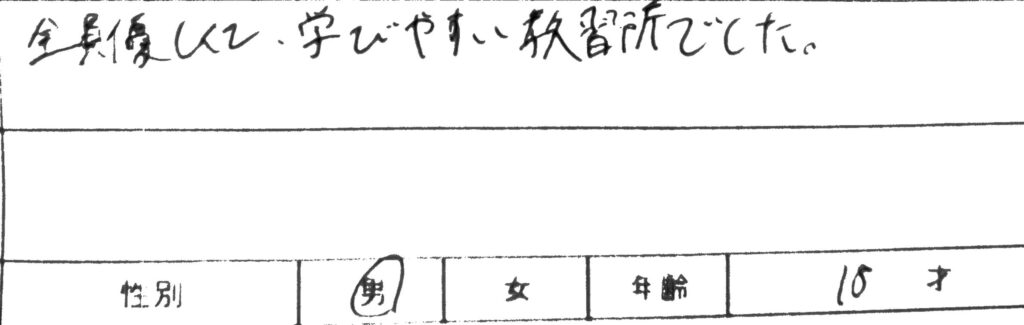 全員優しくて、学びやすい教習所でした。
性別 男 女 年齢 18 才